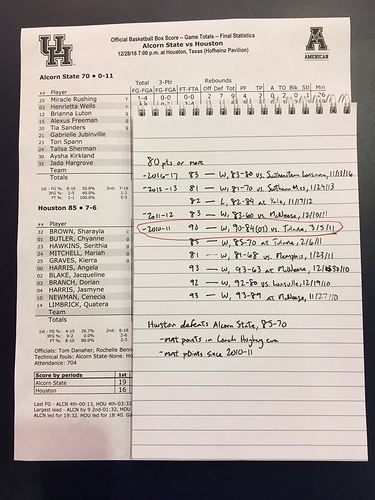 Official Basketball Box Score -- Game Totals -- Final Statistics
Alcorn State vs Houston
12/28/16 7:00 p.m. at Houston, Texas (Hofheinz Pavilion)
AMERICAN
Alcorn State 70 • 0-11
Total 3-Ptr Rebounds
## Player FG-FGA FG-FGA FT-FTA Off Def Tot PF TP A TO Blk Stl Min
25 Miracle Rushing
03 Henrietta Wells
12 Brianna Luton
15 Alexus Freeman
20 Tia Sanders
21 Gabrielle Jubinville
23 Tori Spann
24 Talisa Sherman
30 Aysha Kirkland
32 Jada Hargrove
Team
Totals
Houston 85 • 7-6
## Player
32 BROWN, Sharayla
01 BUTLER, Chyanne
23 HAWKINS, Serithia
24 MITCHELL, Mariah
25 GRAVES, Kierra
00 HARRIS, Angela
02 BLAKE, Jacqueline
03 BRANCH, Dorian
04 HARRIS, Jasmyne
10 NEWMAN, Cenecia
14 LIMBRICK, Quatera
Team
Totals
Officials: Tom Danaher, Rochelle
Technical fouls: Alcorn State-None.
Attendance: 704
Score by periods 1st
Alcorn State 19
Houston 16
Last FG - ALCN 4th-00:13, HOU
Largest lead - ALCN by 9 2nd-01:32, HOU
ALCN led for 19:32. HOU led for 18:40.
80 pts or more
- 2016-17 83 - W, 83-80 vs. Southeastern Louisiana, 11/13/16
- 2012-13 81 - W, 81-70 vs. Southern Miss, 1/24/13
82 - L, 82-89 at Yale, 11/17/12
- 2011-12 83 - W, 83-60 vs. McNeese, 12/10/11
- 2010-11 90 - W, 90-84 (OT) vs. Tulane, 3/5/11
85 - W, 85-70 at Tulane, 2/6/11
81 - W, 81-68 vs. Memphis, 1/23/11
93 - W, 93-63 at
92 - W, 92-80 vs. Louisville, 12/19/10
93 - W, 93-89 at McNeese, 11/27/10
Houston defeats Alcorn State, 85-70
- most points in Coach Hughey era
- most points since 2010-11